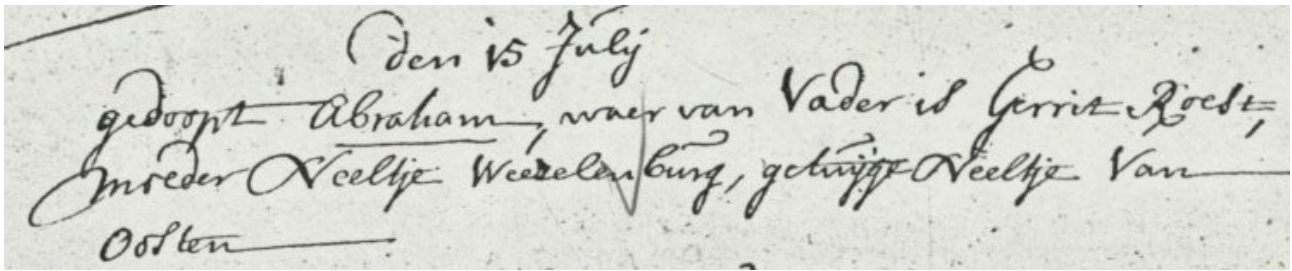 den 15 July
gedoopt Abraham, waer van Vader is Gerrit Roest,
moeder Neeltje Weeselenburg, getuijge Neeltje Van
Oosten